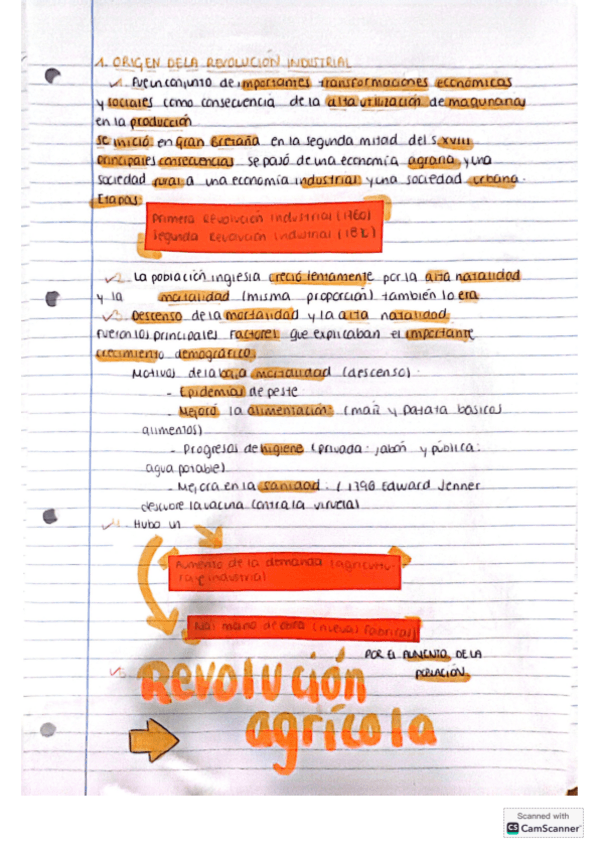 1. ORIGEN DE LA REVOLUCIÓN INDUSTRIAL
1. Fue un conjunto de importantes transformaciones económicas
y sociales como consecuencia de la alta utilización de maquinarias
en la producción
Se inició en Gran Bretaña en la segunda mitad del s.XVIII
principales consecuencias se pasó de una economía agraria y una
sociedad rural a una economía industrial y una sociedad urbana.
Etapas:
Primera Revolución Industrial (1760)
Segunda Revolución Industrial
2. La población inglesa creció lentamente por la alta natalidad
y la mortalidad (misma proporción) también lo era
3. Descenso de la mortalidad y la alta natalidad
fueron los principales factores que explicaban el importante
crecimiento demográfico
Motivos de la baja mortalidad (descenso).
- Epidemias de peste
- Mejoró la alimentación: (maíz y patata básicos
alimentos)
- Progresos de higiene (privada: jabón y pública:
agua potable)
- Mejora en la sanidad: (1796 Edward Jenner
descubre la vacuna contra la viruela)
4. Hubo un
Aumento de la demanda (agricultu-
ra e industrial)
mano de obra (nuevas fábricas)
POR EL AUMENTO DE LA
POBLACIÓN
5. Revolución
agrícola
Scanned with
CS CamScanner